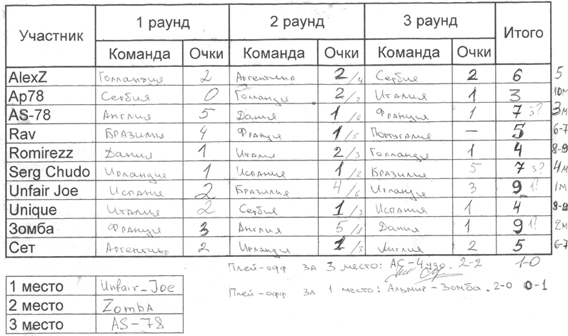 Участник 1 раунд 2 раунд 3 раунд Итого
Команда Очки Команда Очки Команда Очки
AlexZ Голландия 2 Аргентина 2/4 Сербия 2 6 5
Ap78 Сербия 0 Голланди 2/2 Италия 1 3 10м
AS-78 Англия 5 Дания 1/6 Франция 1 7 3? 3м
Rav Бразилия 4 Франция 1/5 Португалия — 5 6-7
Romirezz Дания 1 Итали 2/3 Голландия 1 4 8-9
Serg Chudo Ирландия 1 Испания 1/2 Бразилия 5 7 3? 4м
Unfair Joe Испания 2 Бразилия 4/6 Ирландия 3 9 1! 1м
Unique Италия 2 Сербия 1/3 Испания 1 4 8-9
Зомба Франция 3 Англия 5/8 Дания 1 9 1! 2м
Сет Аргентин 2 Ирланди 1/3 Англия 2 5 6-7
Плей-офф за 3 место: AS-Чудо. 2-2 1-0
Плей-офф за 1 место: Зомба. 2-0 0-1
1 место Unfair_Joe
2 место Zomba
3 место AS-78